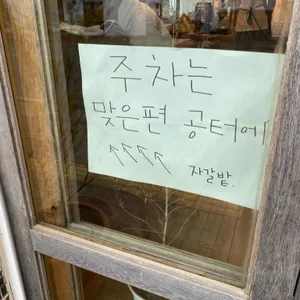 주차는
맞은편 공터에
↖↖↖↖ 자갈밭.